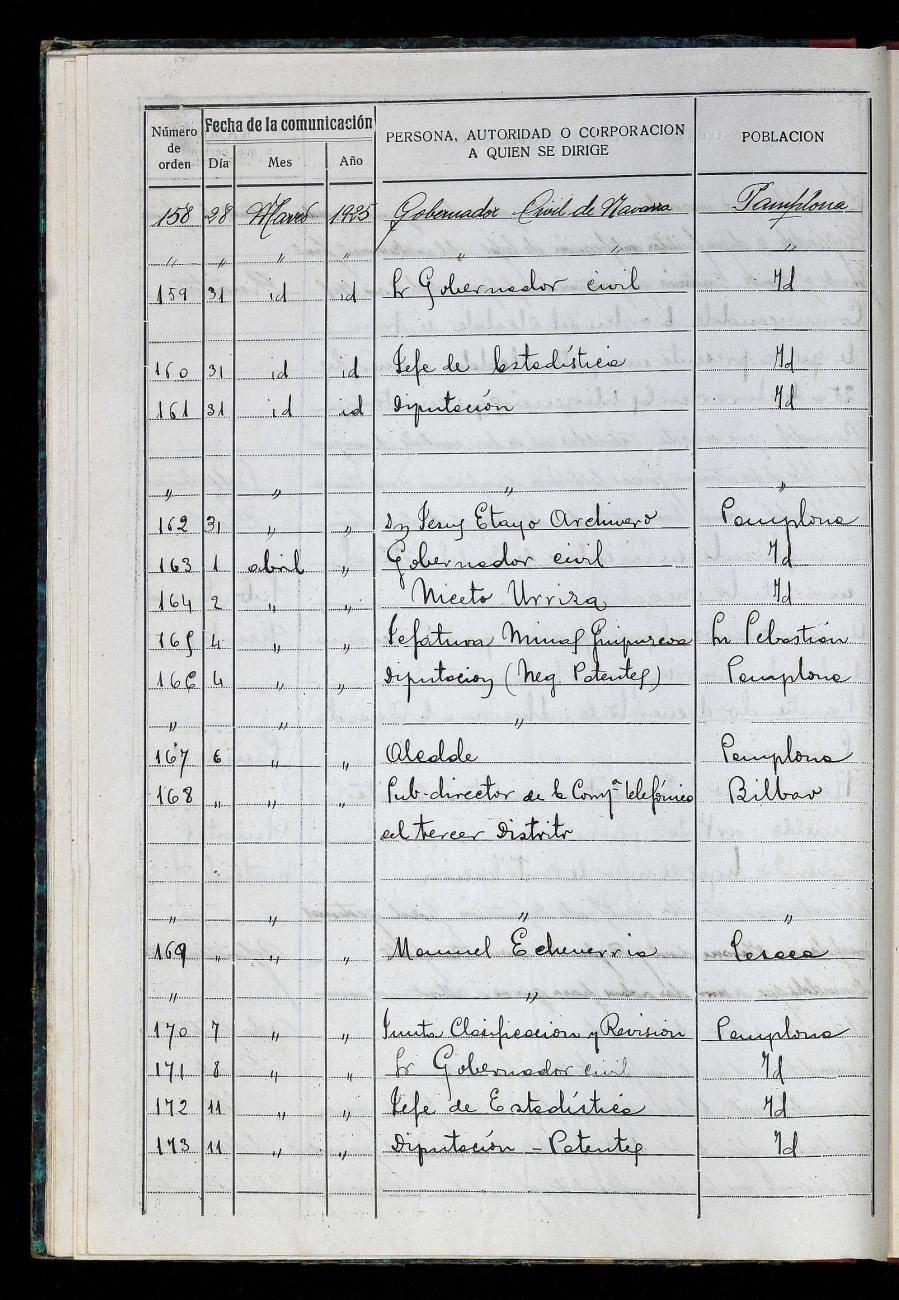 Número de orden Fecha de la comunicación PERSONA, AUTORIDAD O CORPORACION A QUIEN SE DIRIGE POBLACION
Día Mes Año
158 28 Marzo 1925 Gobernador Civil de Navarra Pamplona
" " " " " " "
159 31 id id Sr Gobernador civil Id
160 31 id id Jefe de Estadística Id
161 31 id id Diputación Id
" " " "
162 31 " " Dn Jesus Etayo Archivero Pamplona
163 1 abril " Gobernador civil Id
164 2 " " Niceto Urriza Id
165 4 " " Jefatura Minas Guipuzcoa Sn Sebastián
166 4 " " Diputacion (Neg. Patentes) Pamplona
" " "
167 6 " " Alcalde Pamplona
168 " " " Sub-director de la Compª telefónica Bilbao
del tercer Distrito
" " " "
169 " " " Manuel Echeverria Lesaca
" "
170 7 " " Junta Clasificacion y Revisión Pamplona
171 8 " " Sr Gobernador civil Id
172 11 " " Jefe de Estadística Id
173 11 " " Diputación - Patentes Id